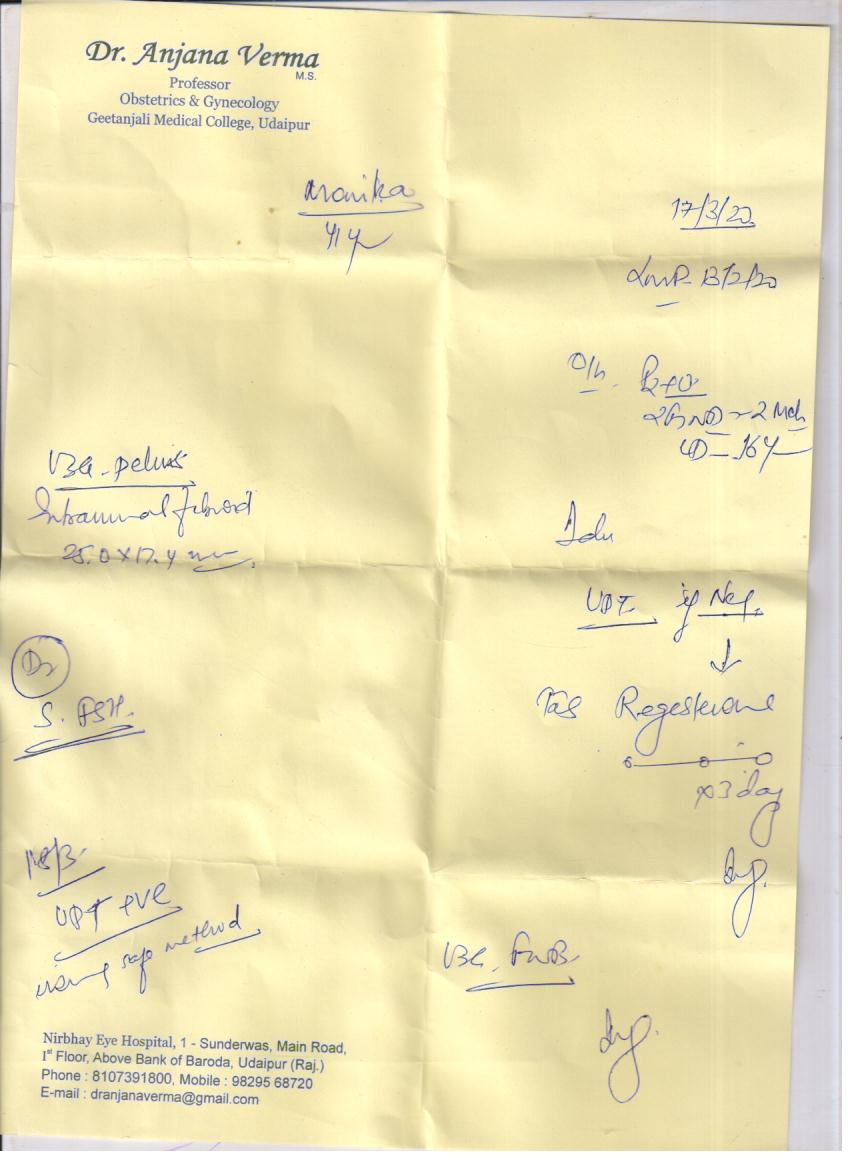 Dr. Anjana Verma
M.S.
Professor
Obstetrics & Gynecology
Geetanjali Medical College, Udaipur
Monika
41 y
17/3/20
LMP- 13/2/20
O/h. P2+0
2 FTND - 2 Mch
LD - 16 y
USG - pelvis
Intramural fibroid
25.0 x 17.4 mm
Adv
UPT if Neg.
↓
Tab Regesterone
x 3 day
S. FSH.
18/3-
UPT +ve
using safe method
USG,
Nirbhay Eye Hospital, 1 - Sunderwas, Main Road,
1st Floor, Above Bank of Baroda, Udaipur (Raj.)
Phone : 8107391800, Mobile : 98295 68720
E-mail : dranjanaverma@gmail.com